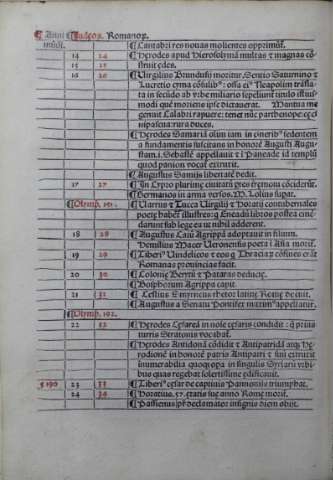 Anni Iudeoꝝ. Romanoꝝ.
mũdi. ¶Cantabri res nouas molientes opprimũt.
14 24 ¶Herodes apud Hierosolymã multas et magnas cõ-
struit ędes.
16 26 ¶Uirgilius Brundusij moritur, Sentio Saturnino et
Lucretio cynna cõsulibꝰ: ossa eiꝰ Neapolim transla-
ta in secũdo ab vrbe miliario sepeliunt titulo istius-
modi quẽ moriens ipse dictauerat. Mantua me
genuit Calabri rapuere: tenet nũc parthenope: ceci-
ni pascua: rura: duces.
¶Herodes Samariã olim iam in cinerẽ sedentem
a fundamentis suscitans in honorẽ Augusti Augu-
stam. i. Sebastẽ appellauit
quod panion vocãt extruxit.
¶Augustus Samijs libertatẽ dedit.
17 27 ¶In Cypro plurimę ciuitatũ
¶Germanos in arma versos M. Lolius supat.
¶Olymp. 191. ¶Uarius et Tucca Virgilij et Horatij contubernales
poetę habent illustres: q Eneadũ libros postea emẽ-
darunt sub lege ea ut nihil adderent.
18 28 ¶Augustus Caiũ Agrippã adoptauit in filium.
¶Emilius Macer Ueronensis poeta i Asia morit̃.
19 29 ¶Tiberiꝰ Vindelicos et eos q Thraciaꝫ cõfines erãt
Romanas prouincias facit.
20 30 ¶Colonię Beryti et Pataras deducte.
¶Bosphorum Agrippa capit.
21 31 ¶Cestius Smyrneus rhetor latine Romę docuit.
¶Augustus a Senatu Pontifex maximꝰ appellatur.
¶Olymp. 192.
22 32 ¶Herodes Cesareã in noĩe cesaris condidit: q prius
turris Stratonis vocabat̃.
¶Herodes Antidonã cõdidit et Antipatridã
rodionẽ in honorẽ patris Antipatri et
inumerabilia quoqꝫ opa in singulis Syriarũ vrbi-
bus quas regebat solertissime ędificauit.
5190 23 33 ¶Tiberiꝰ cęsar de captiuis Pannoniis triumphat.
24 34 ¶Horatius. 57. ętatis suę anno Romę morit̃.
¶Passienus pr̃ declamator insignis diem obijt.